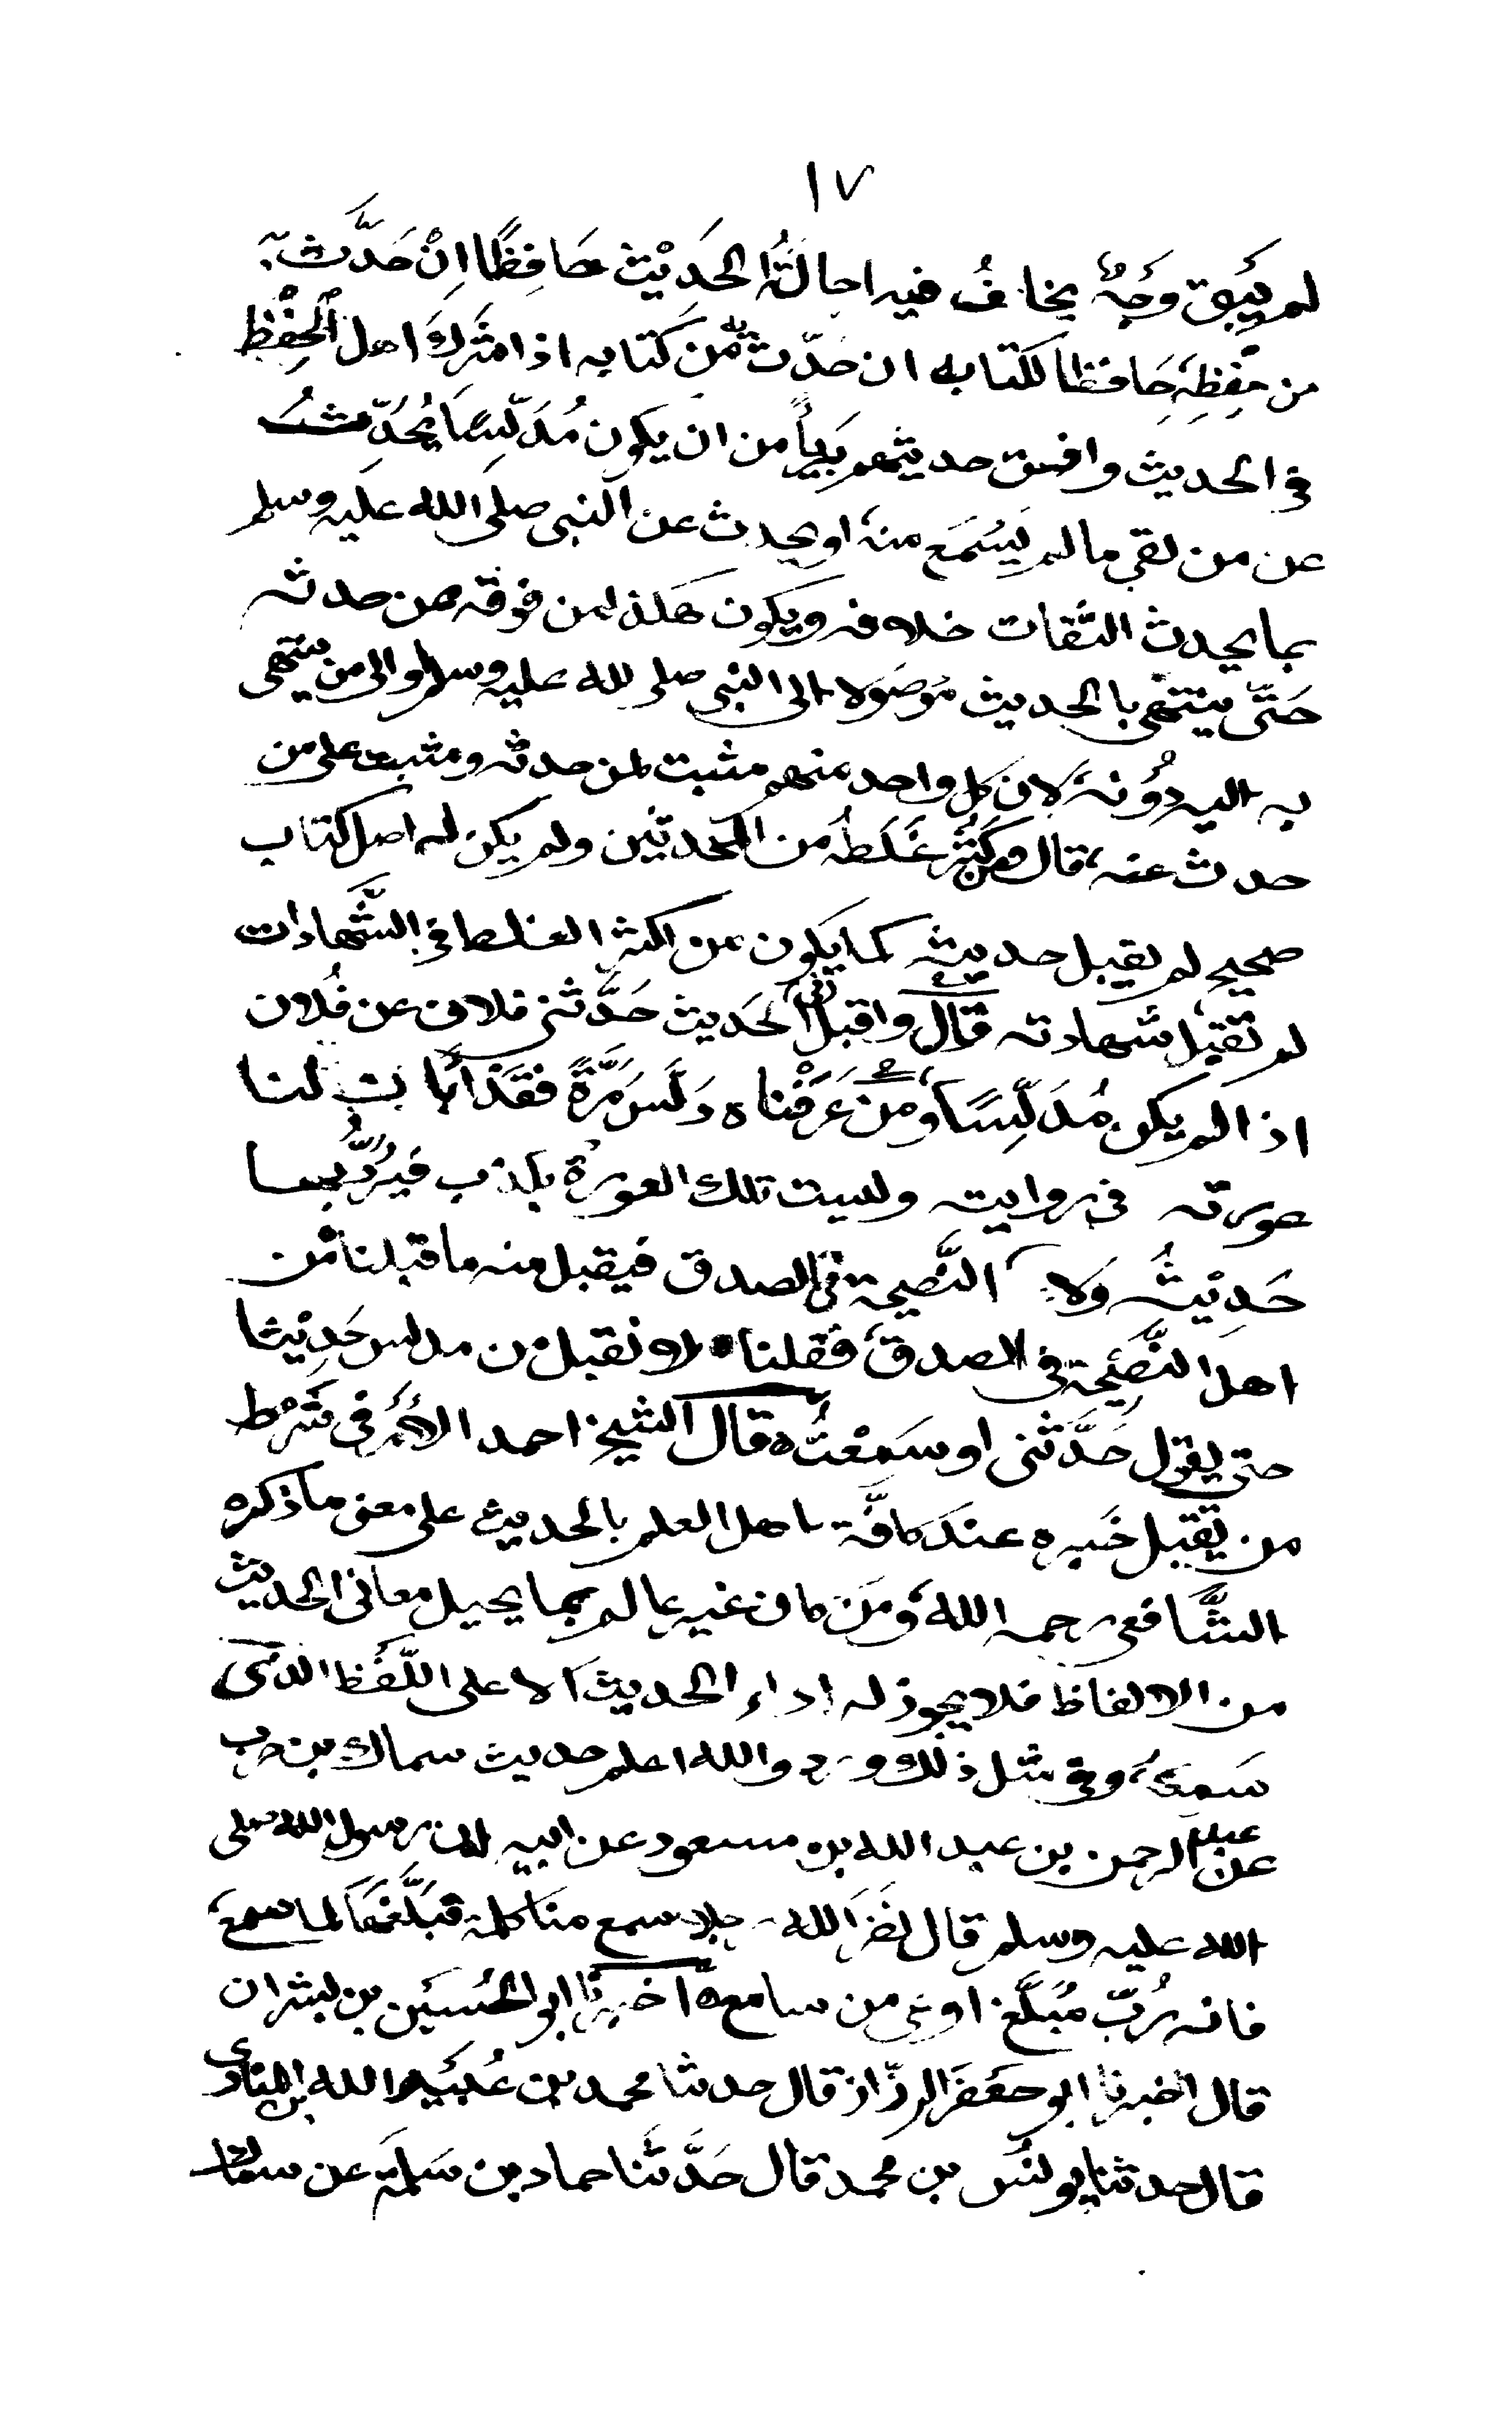 ١٧
لم يَبق وَجْهٌ يخافُ فيه احالتُهُ الحَدِيْث حَافِظًا اِنْ حَدَّث به
من حِفْظِهٖ حَافظا لكتابه ان حَدّث به من كتابه اذا شَرِكَ اهل الحِفْظ
فى الحديث وافق حديثهم بَرِيأً من ان يكون مُدَلِّسًا يُحَدِّثُ
عن من لقى ما لم يَسْمَع منهُ او يحدث عن النبى صلى الله عليه وسلم
بما يحدث الثقات خلافه ويكون هكذا من فوقه ممن حدثه
حَتّى ينتهى بالحديث مَوصَولا الى النبى صلى لله عليه وسلم او الى من ينتهى
به اليه دُوْنهٗ لان كل واحد منهم مثبت لمن حدثه ومثبت على من
حدث عنه، قال ومن كَثُرَ غَلَطُهُ مَن المحدثين ولم يكن له اصل كتاب
صحيح لم يقبل حديثه كما يكون من اكثر الغلط فى الشَّهادات
لم تقبل شهادته قال واقبل فى الحَديث حَدَّثنى فلان عن فُلان
اذا لم يكن مُدَلِّسًا، ومَنْ عَرَفْناه دَلَّسَ مَرَّةً فقَدْ اَبَانَ لنا
عورته فى روايته وليست تلك العورة بكذب فيَرُدُّ بها
حَدِيْثُه وَلا النَّصيحة فى الصدق فيقبل منه ما قبلنا من
اهل النَّصِيْحة فى الصدق، فقلنا لا نقبل من مدلس حَدِيْثا
حتى يقول حَدَّثنى او سَمِعْتُ ه قال الشيخ احمد الاَمْرُ فى شَرْط
من يُقْبَل خَبره عندَ كافَّة اهل العلم بالحديث على معنى ما ذكره
الشَّافعى رحمه الله، ومَنْ كان غير عالم بما يحيل معانى الحديث
من الالفاظ فلا يجوز له اداء الحديث الا على اللَّفْظ الذى
سَمِعَهُ، وفى مثل ذلك ورد والله اعلم حديث سماك بن حرب
عن عبد الرحمن بن عبد الله بن مسعود عن ابيه ان رسول الله صلى
الله عليه وسلم قال نَضَّرَ الله رجلا سمع منا كلمة فبَلَّغَهَا كما سمع،
فانه رُبّ مُبَلَّغ اوعى من سامع ه اخبرنا ابو الحُسَيَن بن بشران
قال اخبرنا ابو جعفر الرزّاز قال حدثنا محمد بن عُبَيد الله بن المنادى
قال حدثنا يونس بن محمد قال حَدَّثنا حماد بن سَلَمَة عن سماك